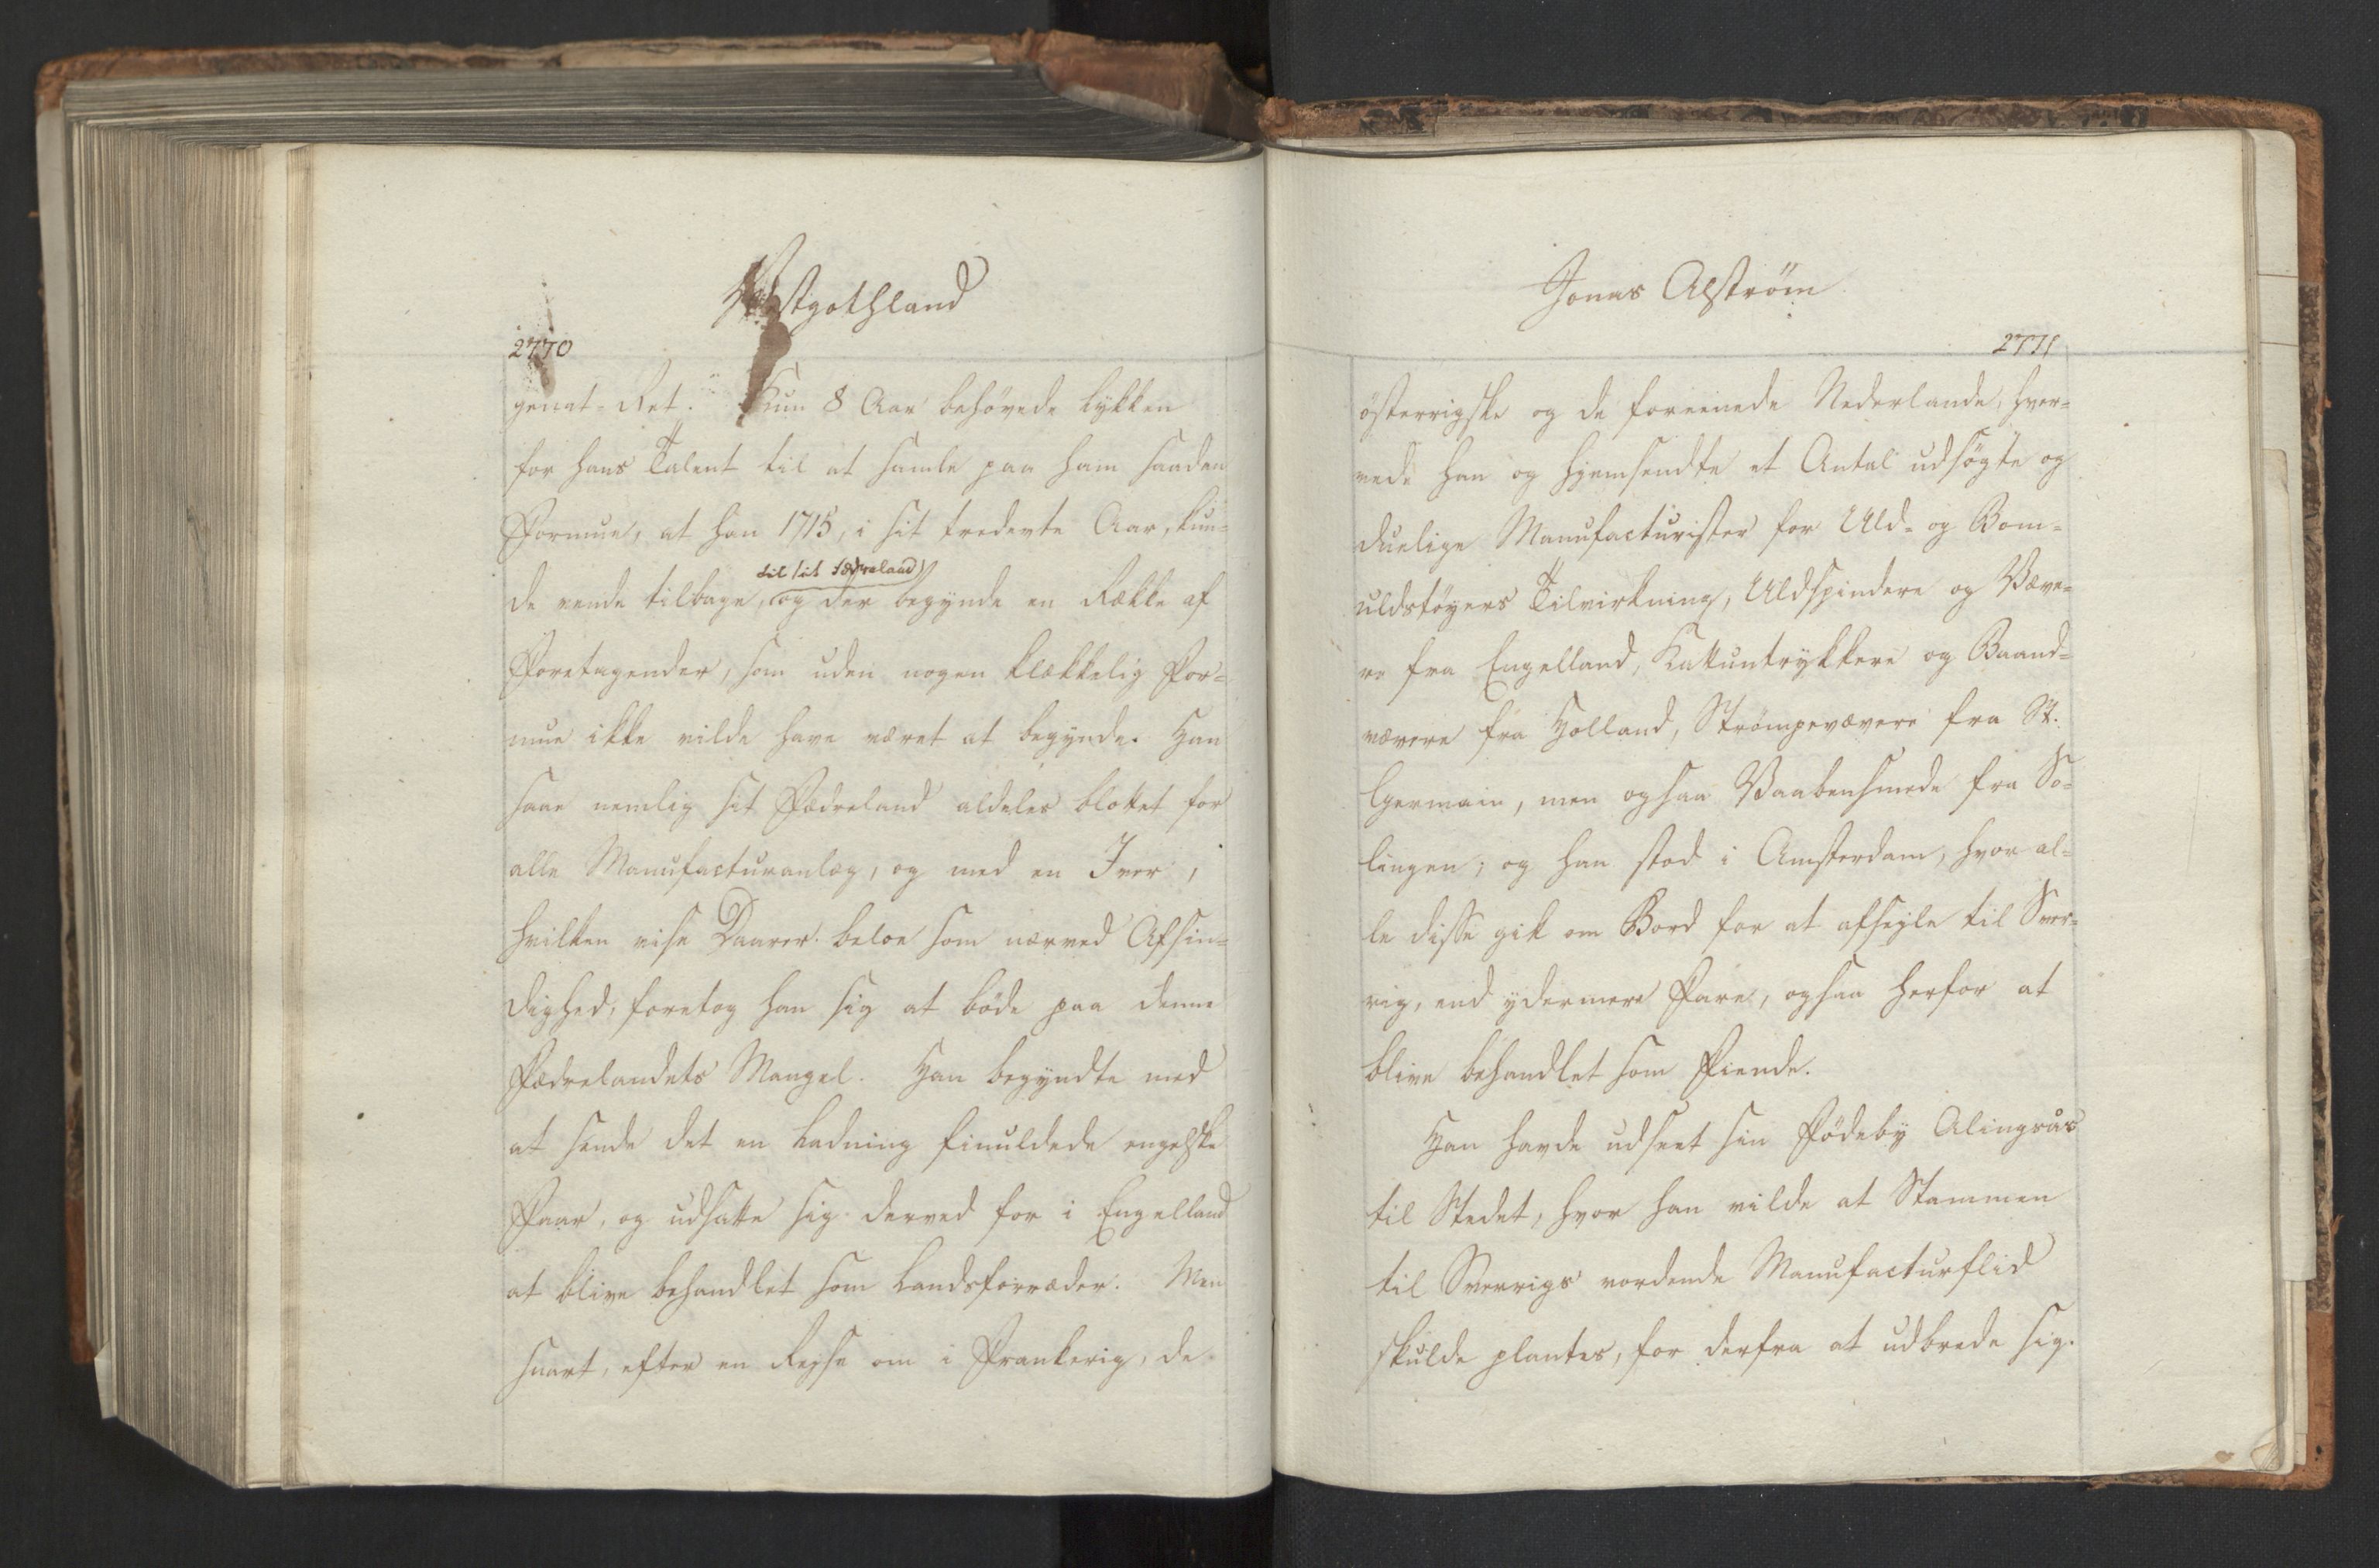 Westgothland
2770
genat-Ret. Kun 8 Aar behøvede Lykken
for hans Talent til at samle paa ham saaden
Formue, at han 1715, i sit tredevte Aar, kun-
til sit Fædreland
de vende tilbage, og der begynde en Række af
Foretagender, som uden nogen klækkelig For-
mue ikke vilde have været at begynde. Han
saae nemlig sit Fædreland aldeles blottet for
alle Manufacturanlæg, og med en Iver,
hvilken vise Daarer beloe som nærved Afsin-
dighed, foretog han sig at bøde paa denne
Fædrelandets Mangel. Han begyndte med
at sende det en Ladning finuldede engelske
Faar, og udsatte sig derved for i Engelland
at blive behandlet som Landsforræder. Men
snart, efter en Rejse om i Frankerig, de
Jonas Alström
2771
österrigske og de foreenede Nederlande, hver-
vede han og hjemsendte et Antal udsögte og
duelige Manufacturister for Uld- og Bom-
uldstöyers Tilvirkning, Uldspindere og Væve-
re fra Engelland, Kattuntrykkere og Baand-
vævere fra Holland, Strömpevævere fra St.
Germain, men ogsaa Vaabensmede fra So-
lingen; og han stod i Amsterdam, hvor al-
le disse gik om Bord for at afsejle til Sver-
rig, end ydermere Fare, ogsaa herfor at
blive behandlet som Fiende.
Han havde udseet sin Födeby Alingsås
til Stedet, hvor han vilde at Stammen
til Sverrigs vordende Manufacturflid
skulde plantes, for derfra at udbrede sig.